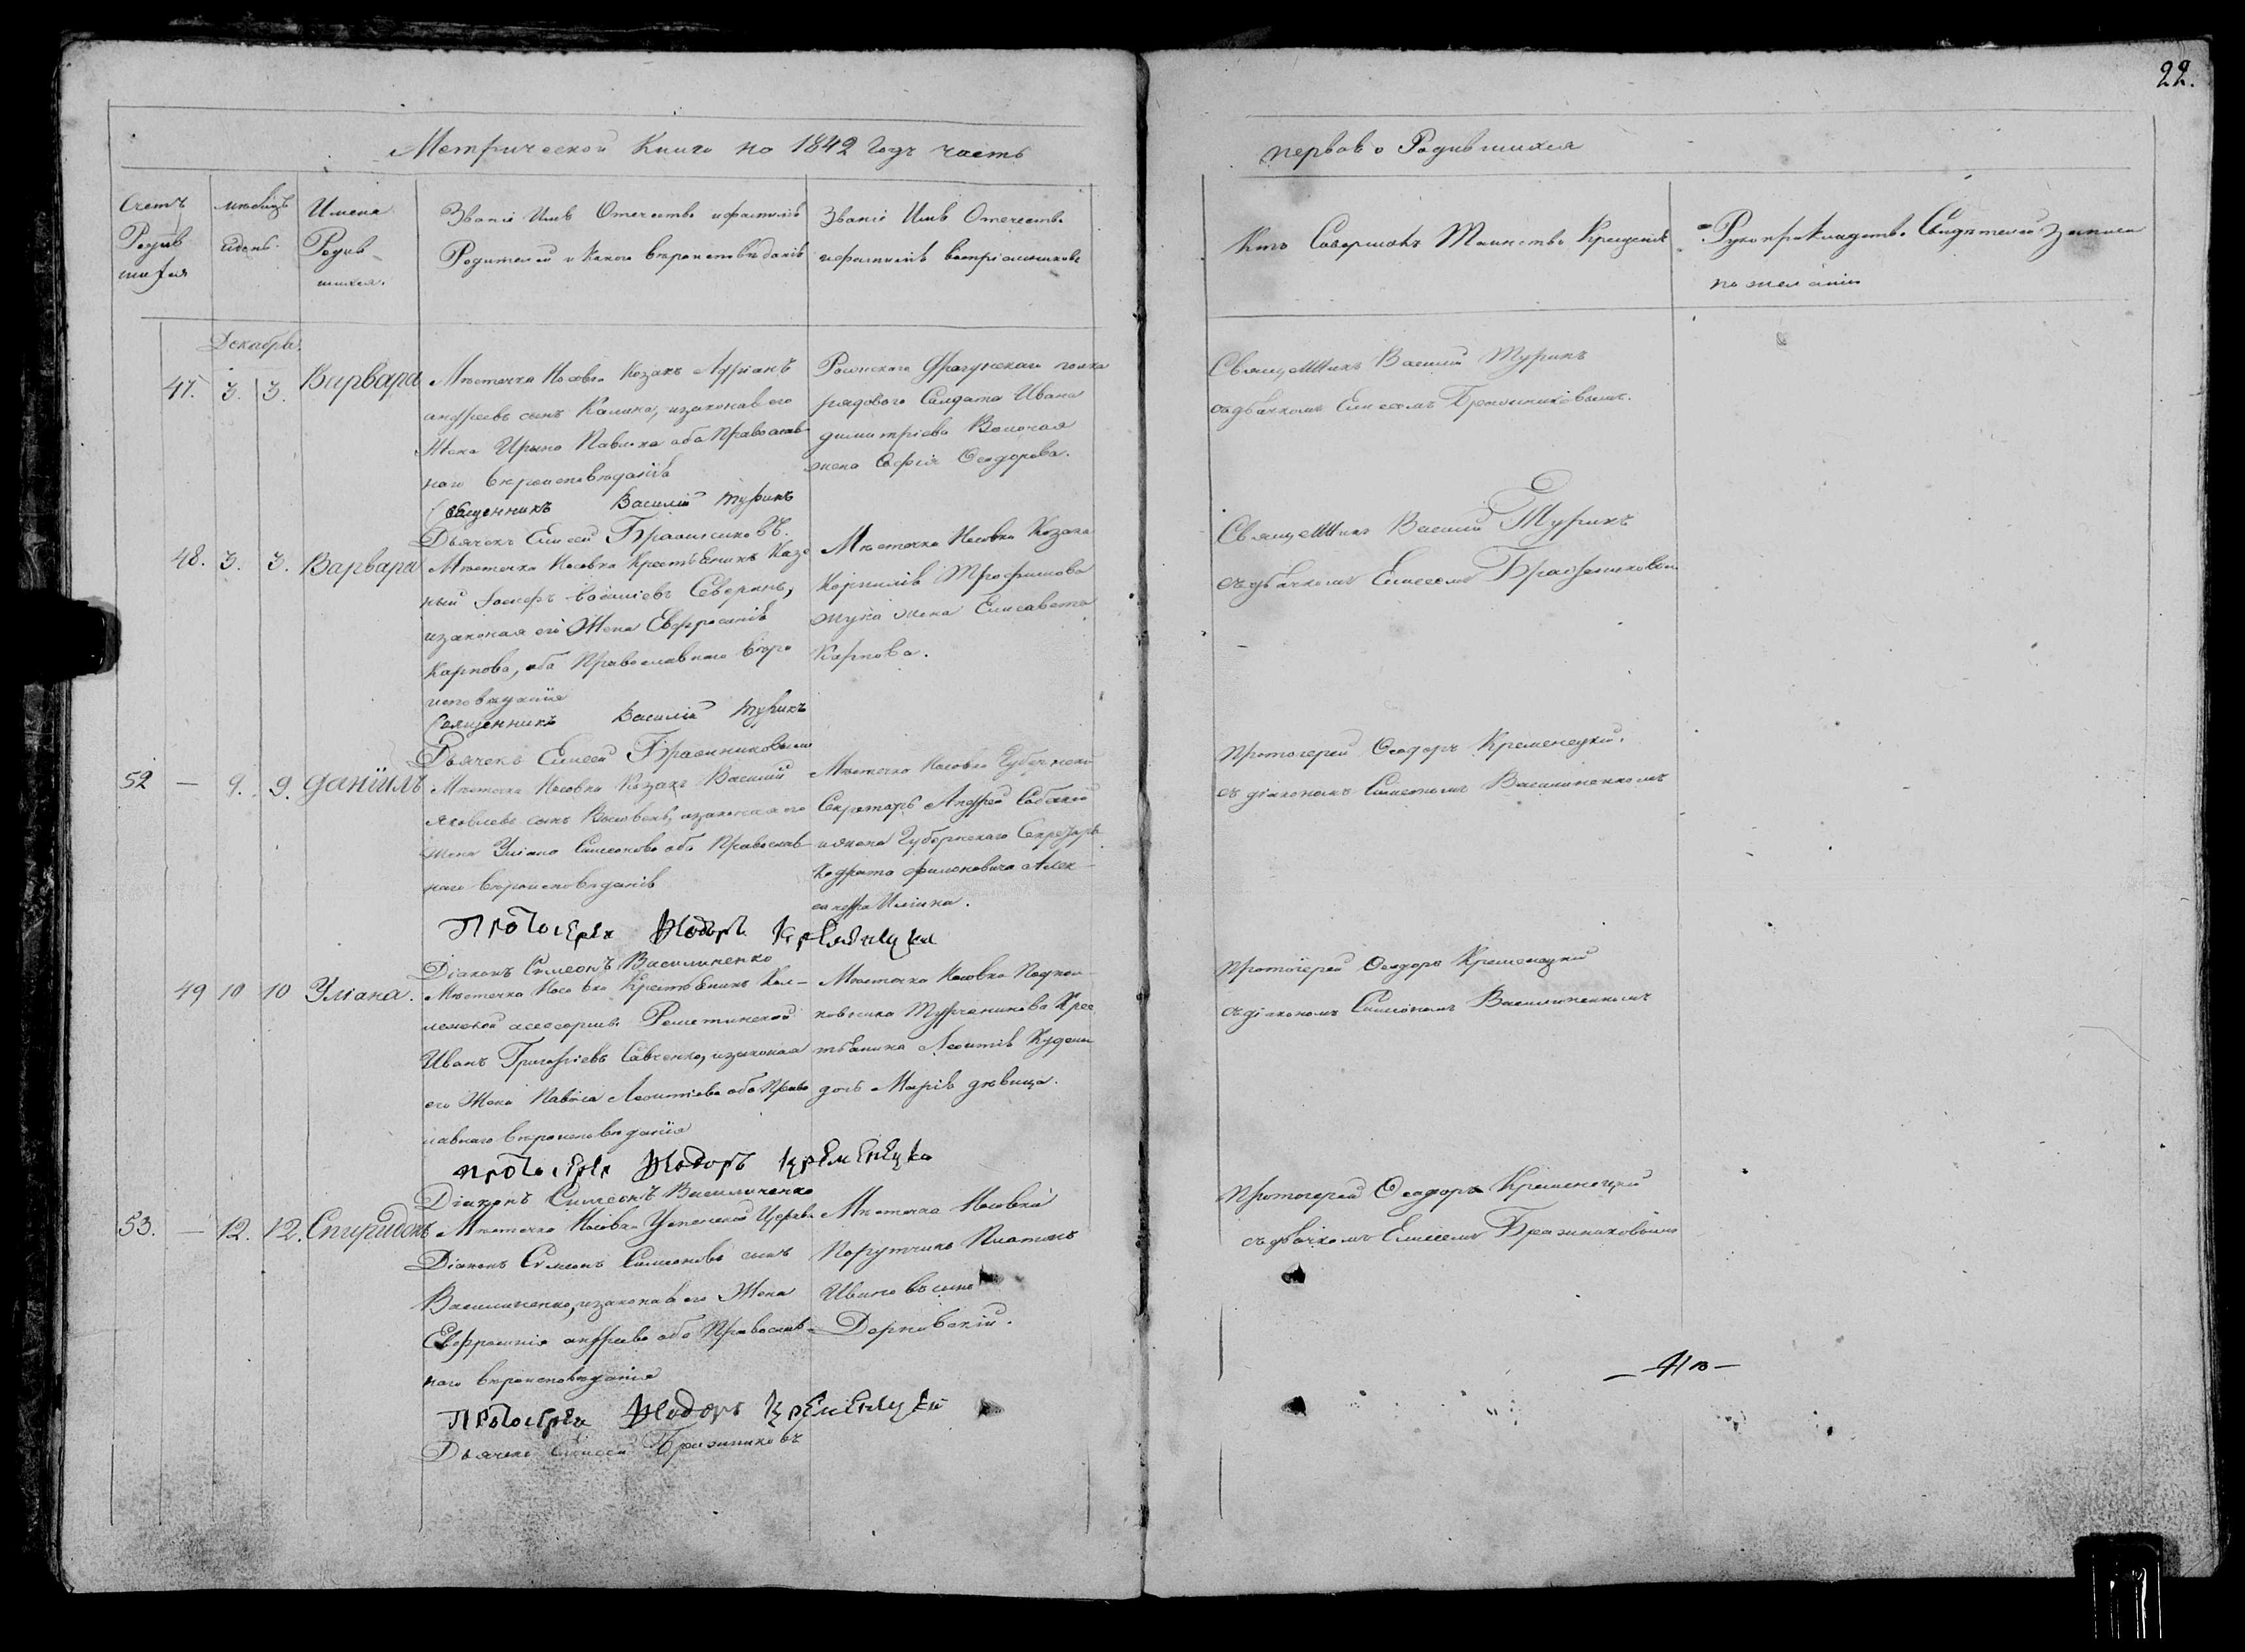 22.
Метрической Книги на 1842 Годъ часть
первово Родившихся
Счетъ
Родив
шихся
мѣсяцъ
идень.
Имена
Родив-
шихся.
Званіе Имѣ Отечество ифамиліѣ
Родителей икакого вѣроисповѣданіѣ
Званіе Имѣ Отечество
ифамиліѣ воспріемниковъ
Кто Совершалъ Таинство Крещеніѣ
Рукоприкладство Свидѣтелей записи
по желанію
Декабрь.
47. 3. 3. Варвара
Мѣстечка Носовки Козакъ
андреевъ сынъ Калина, изаконнаѣ его
Жена Ирина Павлова оба Православ-
наго вѣроисповѣданіѣ
Священникъ Василій Турикъ
Дьячекъ Елисей Бразниковъ.
Драгунскаго полка
рядового Салдата Ивана
димитріева
жена Софія Феодорова.
Священникъ Василій Турикъ
съдьячкомъ Елисеемъ Бразниковымъ.
48. 3. 3. Варвара
Мѣстечка Носовки Крестьѣнинъ Казе
ный Іосифъ василіевъ Северинъ,
изаконая его Жена Евфросиніѣ
Карпова, оба Православнаго вѣро
исповѣданія
Священникъ Василій Турикъ
Дьячекъ Елисей Бразниковымъ
Мѣстечка Носовки Козака
Корниліѣ Трофимова
жука жена Елисавета
Карпова.
Священникъ Василій Турикъ
съдьячкомъ Елисеемъ Бразниковым
52 — 9. 9. Даніилъ
Мѣстечка Носовки Козакъ Василій
Яковлевъ сынъ изаконная его
жена Уліана Симеонова оба Православ-
наго вѣроисповѣданіѣ
Протоіерей Феодоръ Кременецкій
Діаконъ Симеонъ Василиненко
Мѣстечка Носовки Губернскій
Секретарь Андрей
ижена Губернскаго Секретарѣ
Кодрата филоновича Алек-
сандра Ильина.
Протоіерей Феодоръ Кременецкій.
съ діякономъ Симеономъ Василиненкомъ
49 10 10 Уліана.
Мѣстечка Носовки Крестьѣнинъ Кол-
лежской асессорши
Иванъ Григорьевъ Савченко, изаконная
его Жена Леонтіева оба Право
славнаго вѣроисповѣданія
Протоіерей Феодоръ Кременецкій
Діаконъ Симеонъ Василиненко
Мѣстечка Носовки Подпол-
ковника Турчанинова Крес
тьѣнина Леонтіѣ
дочь Маріѣ дѣвица.
Протоіерей Феодоръ Кременецкій
съдіякономъ Симеономъ Василиненкомъ
53. — 12. 12. Спиридонъ
Мѣстечка Носовки Успенской Церкви
Діаконъ Симеонъ Симеоновъ сынъ
Василиненко, изаконнаѣ его Жена
Евфросинія андреева оба Православ-
наго вѣроисповѣданія
Протоіерей Феодоръ Кременецкій
Дьячекъ Елисей Бразниковъ
Мѣстечка Носовки
Порутчикъ Платонъ
Ивановъ сынъ
Дерновскій.
Протоіерей Феодоръ Кременецкій
съдьячкомъ Елисеемъ Бразниковымъ